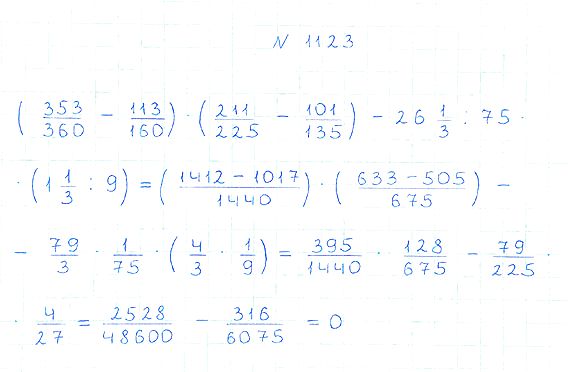 N 1123
( 353/360 − 113/160 ) · ( 211/225 − 101/135 ) − 26 1/3 : 75 ·
· ( 1 1/3 : 9 ) = ( (1412 − 1017)/1440 ) · ( (633 − 505)/675 ) −
− 79/3 · 1/75 · ( 4/3 · 1/9 ) = 395/1440 · 128/675 − 79/225 ·
· 4/27 = 2528/48600 − 316/6075 = 0